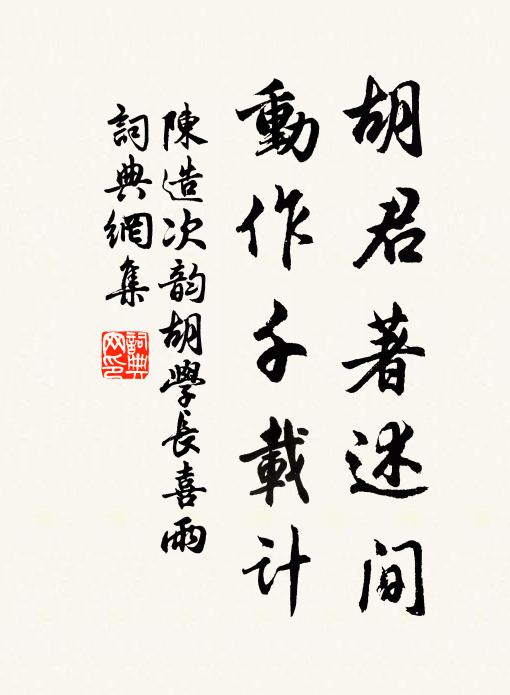 胡君著述间
動作千載计
陳造次韵胡學長喜雨
詞典網集
詞典網印